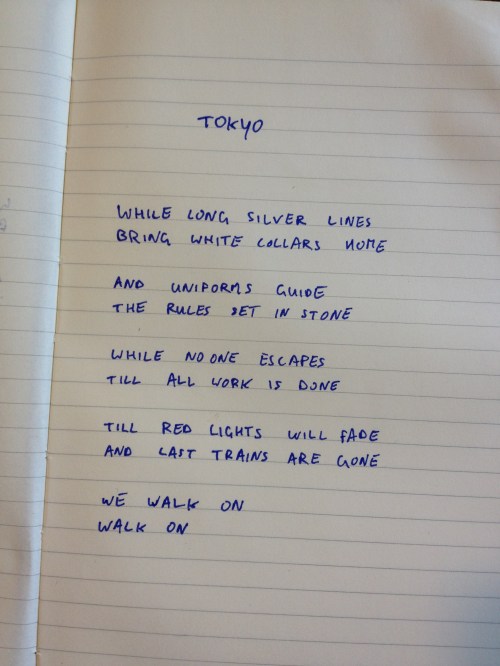 TOKYO
WHILE LONG SILVER LINES
BRING WHITE COLLARS HOME
AND UNIFORMS GUIDE
THE RULES SET IN STONE
WHILE NO ONE ESCAPES
TILL ALL WORK IS DONE
TILL RED LIGHTS WILL FADE
AND LAST TRAINS ARE GONE
WE WALK ON
WALK ON